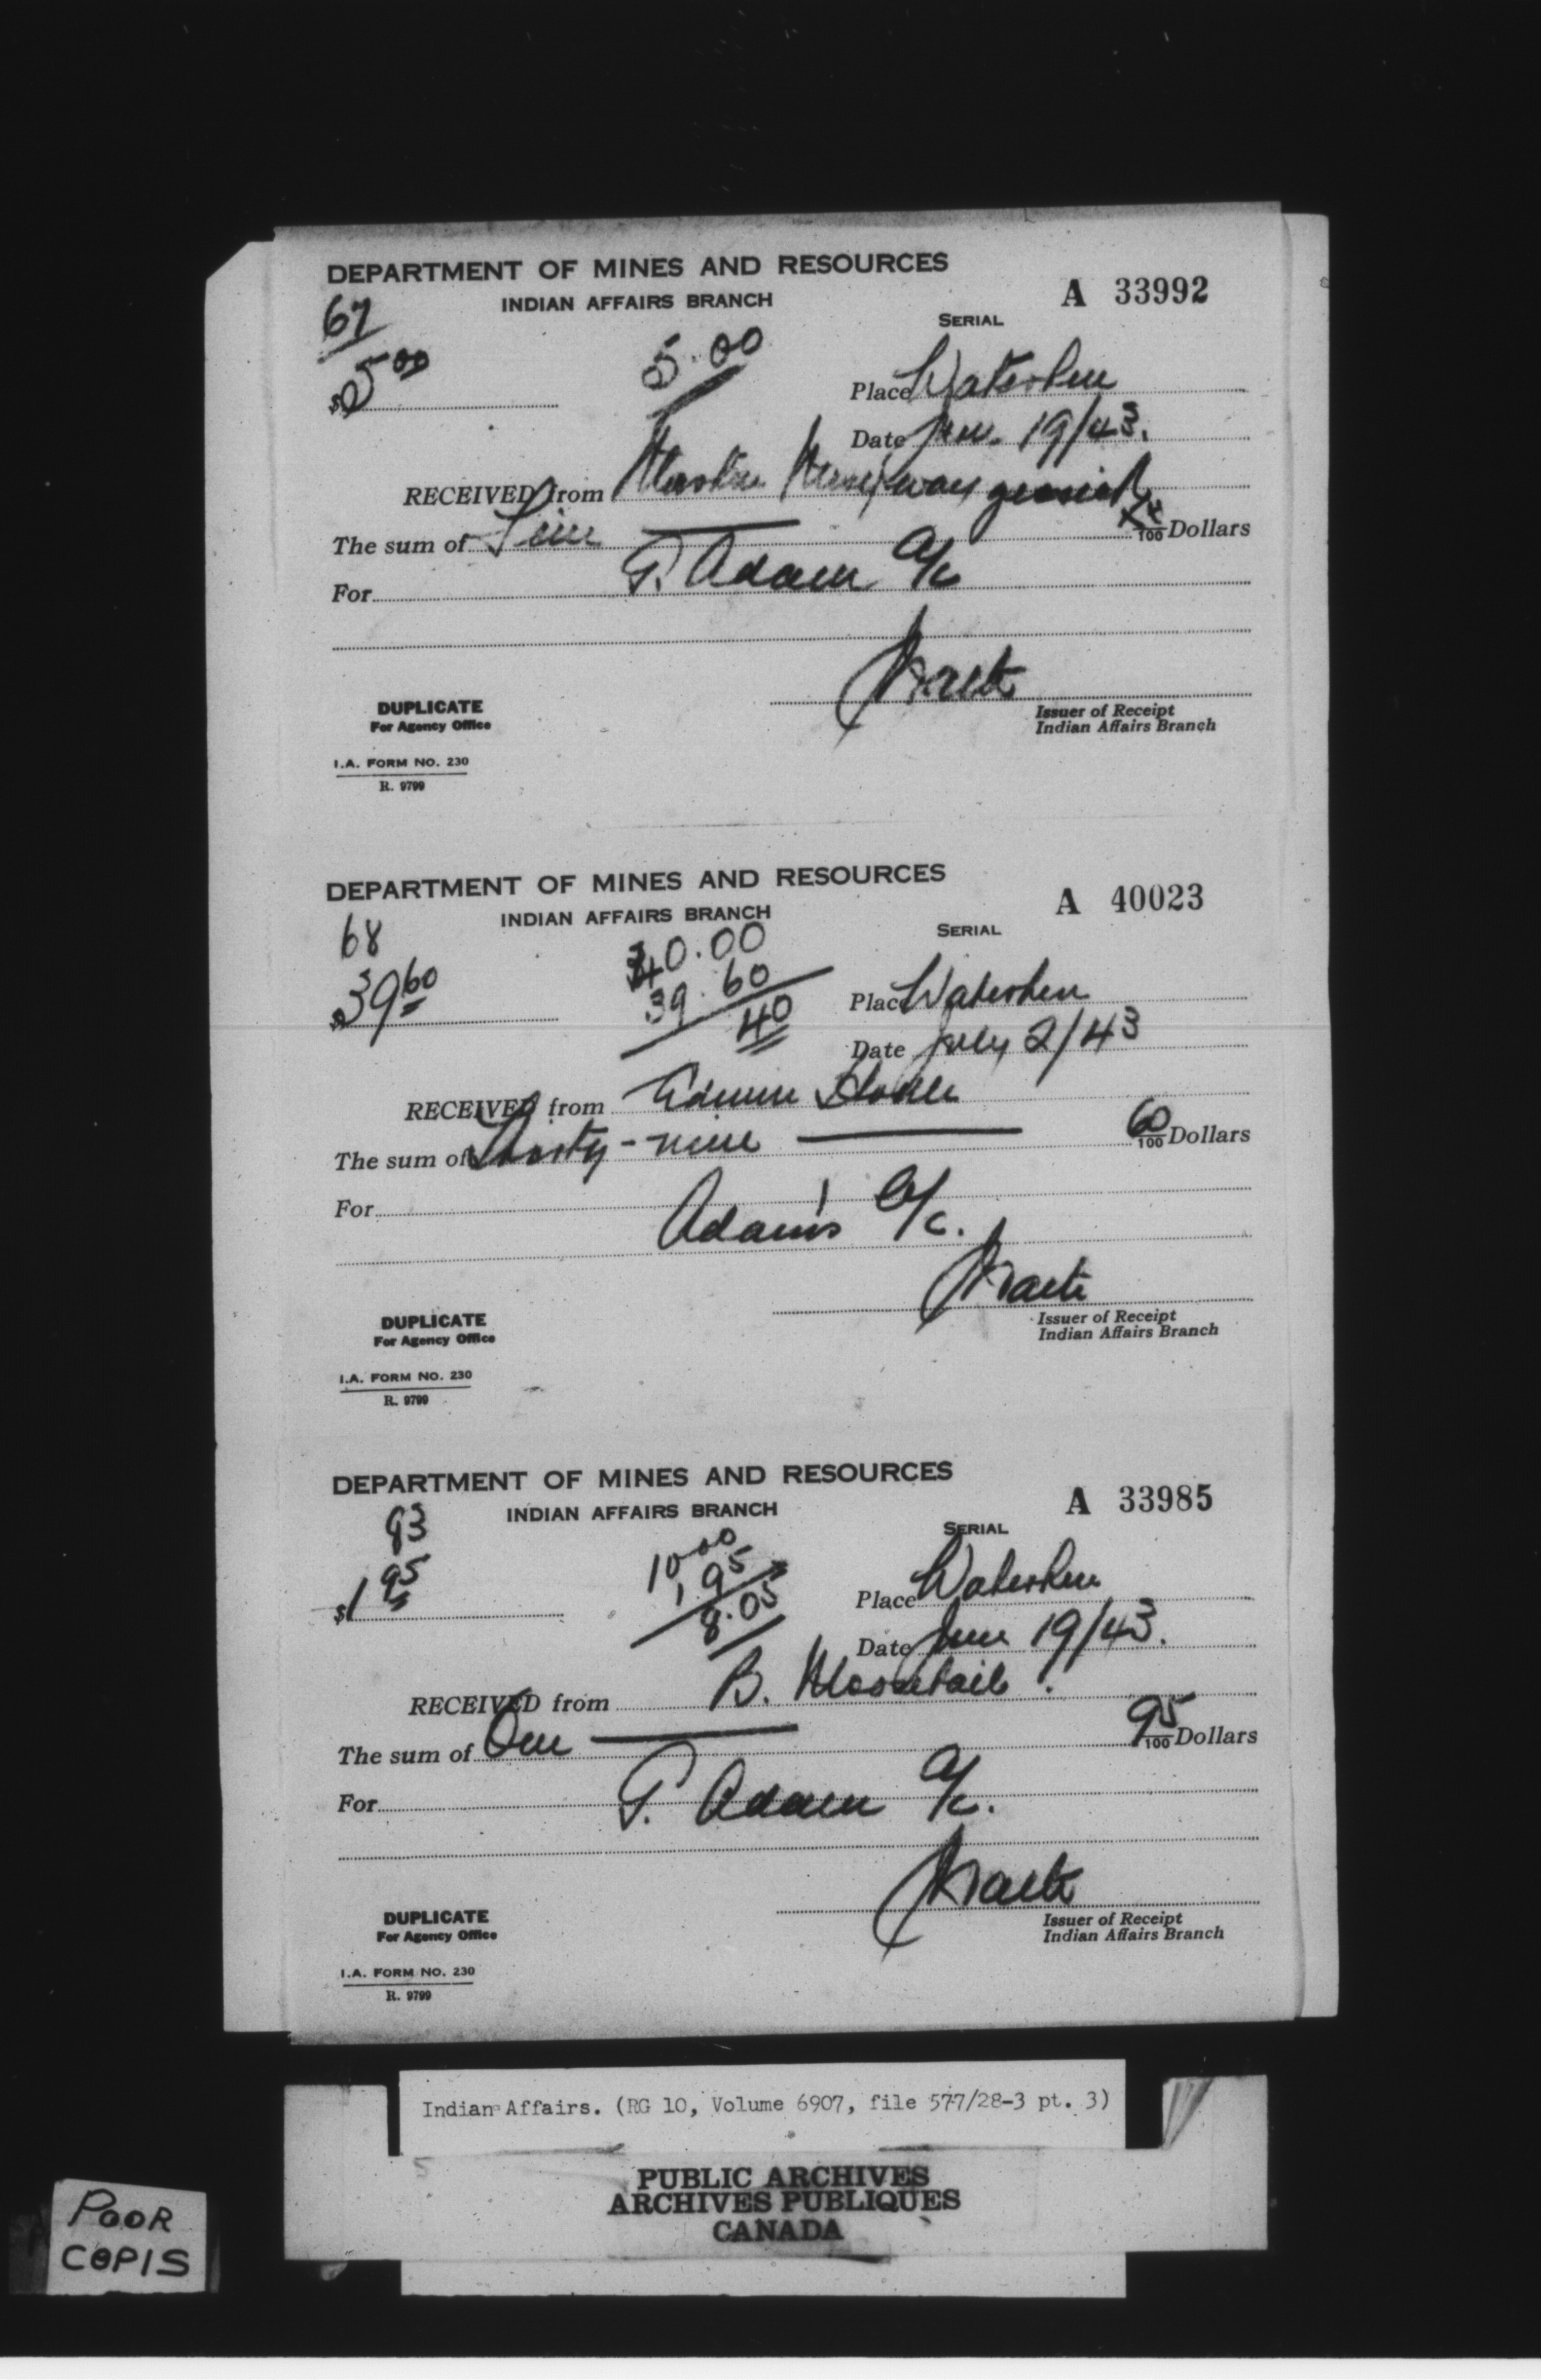 DEPARTMENT OF MINES AND RESOURCES
INDIAN AFFAIRS BRANCH
A 33992
SERIAL
67
$5.00
5.00
Place Waterhen
Date June 19/43.
RECEIVED from
The sum of Five xx/100 Dollars
For P. Adam a/c
Issuer of Receipt
Indian Affairs Branch
DUPLICATE
For Agency Office
I.A. FORM NO. 230
R. 9799
DEPARTMENT OF MINES AND RESOURCES
INDIAN AFFAIRS BRANCH
A 40023
SERIAL
68
$39 60
40.00
39.60
40
Place Waterhen
Date July 2/43
RECEIVED from Edwin
The sum of Thirty-nine 60/100 Dollars
For Adam's a/c.
Issuer of Receipt
Indian Affairs Branch
DUPLICATE
For Agency Office
I.A. FORM NO. 230
R. 9799
DEPARTMENT OF MINES AND RESOURCES
INDIAN AFFAIRS BRANCH
A 33985
SERIAL
93
$1 95
10.00
1.95
8.05
Place Waterhen
Date June 19/43.
RECEIVED from B. Moosetail.
The sum of One 95/100 Dollars
For P. Adam a/c.
Issuer of Receipt
Indian Affairs Branch
DUPLICATE
For Agency Office
I.A. FORM NO. 230
R. 9799
Indian Affairs. (RG 10, Volume 6907, file 577/28-3 pt. 3)
PUBLIC ARCHIVES
ARCHIVES PUBLIQUES
CANADA
POOR
COPIS